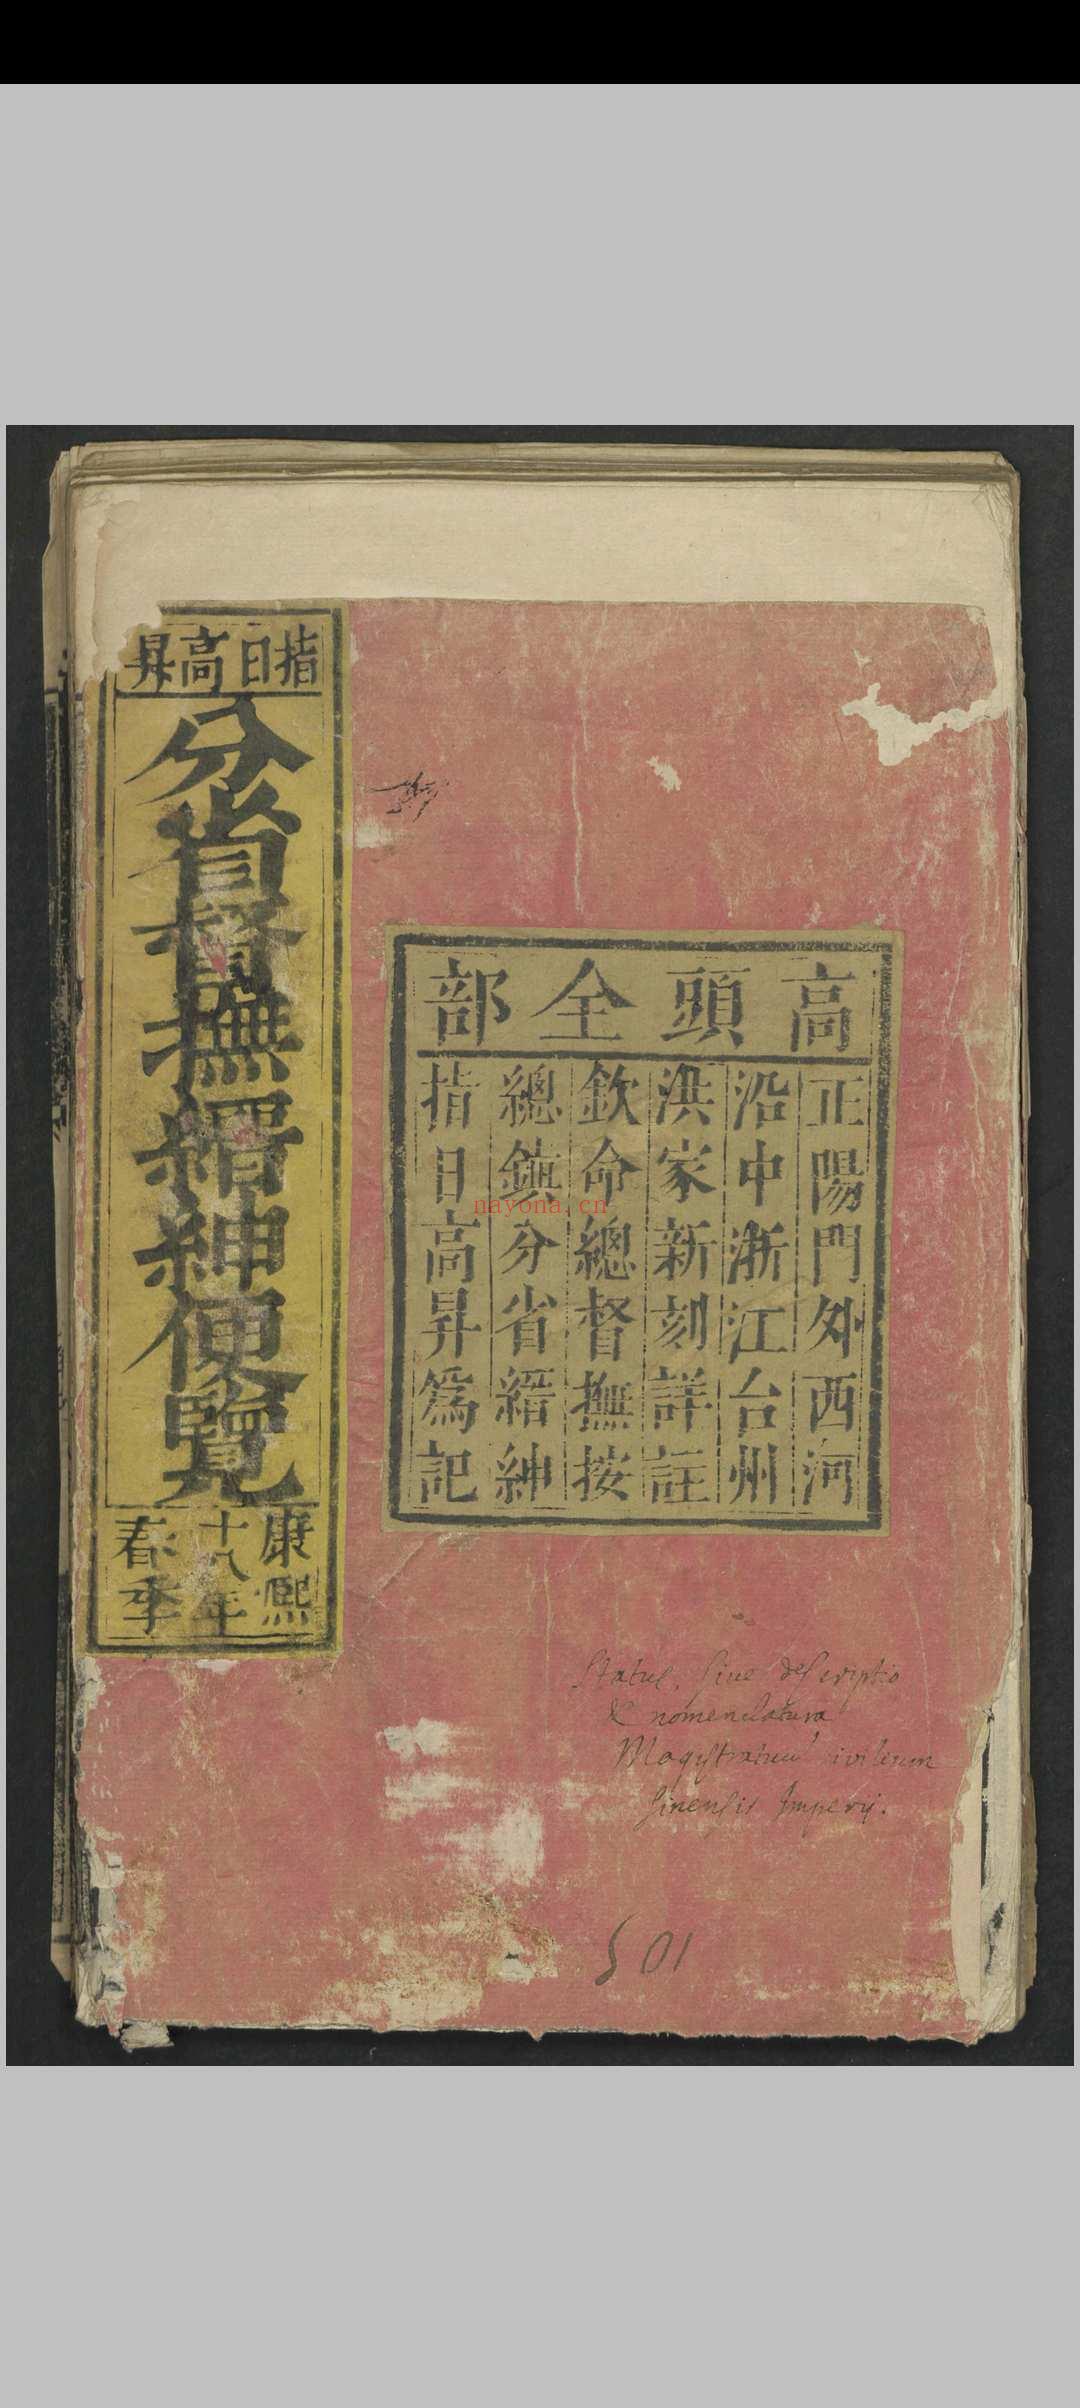 指日高昇
分省督撫縉紳便覽
康熙
十八年
春季
高頭全部
正陽門外西河
沿中浙江台州
洪家新刻詳註
欽命總督撫按
總鎮分省縉紳
指日高昇爲記
nayona.cn
Status, sive descriptio
& nomenclatura
Magistratuum civilium
sinensis Imperij.
501